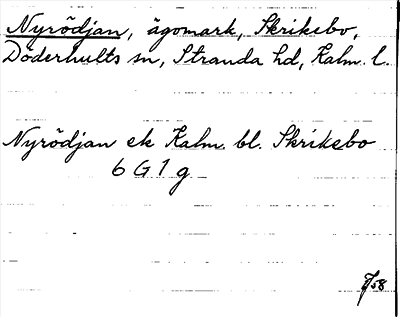 Nyrödjan, ägomark, Skriksbo,
Döderhults sn, Stranda hd, Kalm. l.
Nyrödjan ek Kalm. bl. Skriksbo
6 G 1 g